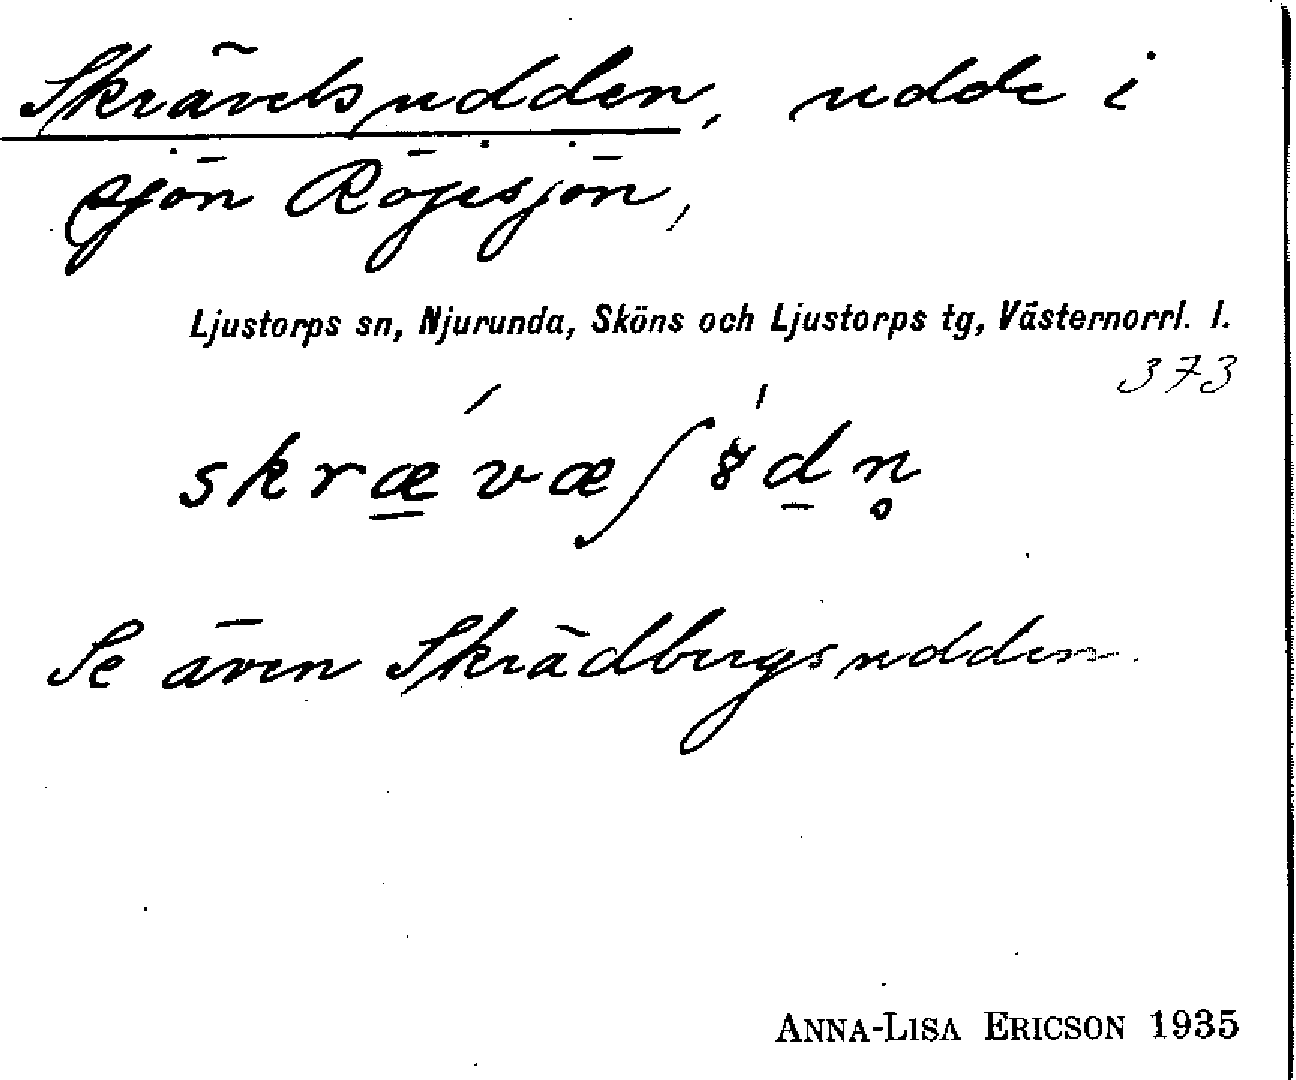 Skrävelsudden, udde i
sjön Röjesjön,
Ljustorps sn, Njurunda, Sköns och Ljustorps tg, Västernorrl. l.
373
skrǽvæʃ 8́dn̥
Se även Skrädbergsudden.
ANNA-LISA ERICSON 1935